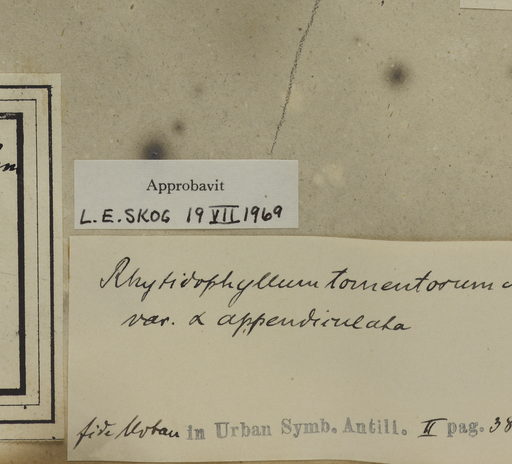 Approbavit
L.E.SKOG 19 VII 1969
Rhytidophyllum tomentorum
var. α appendiculata
fide Urban in Urban Symb. Antill. II pag. 38